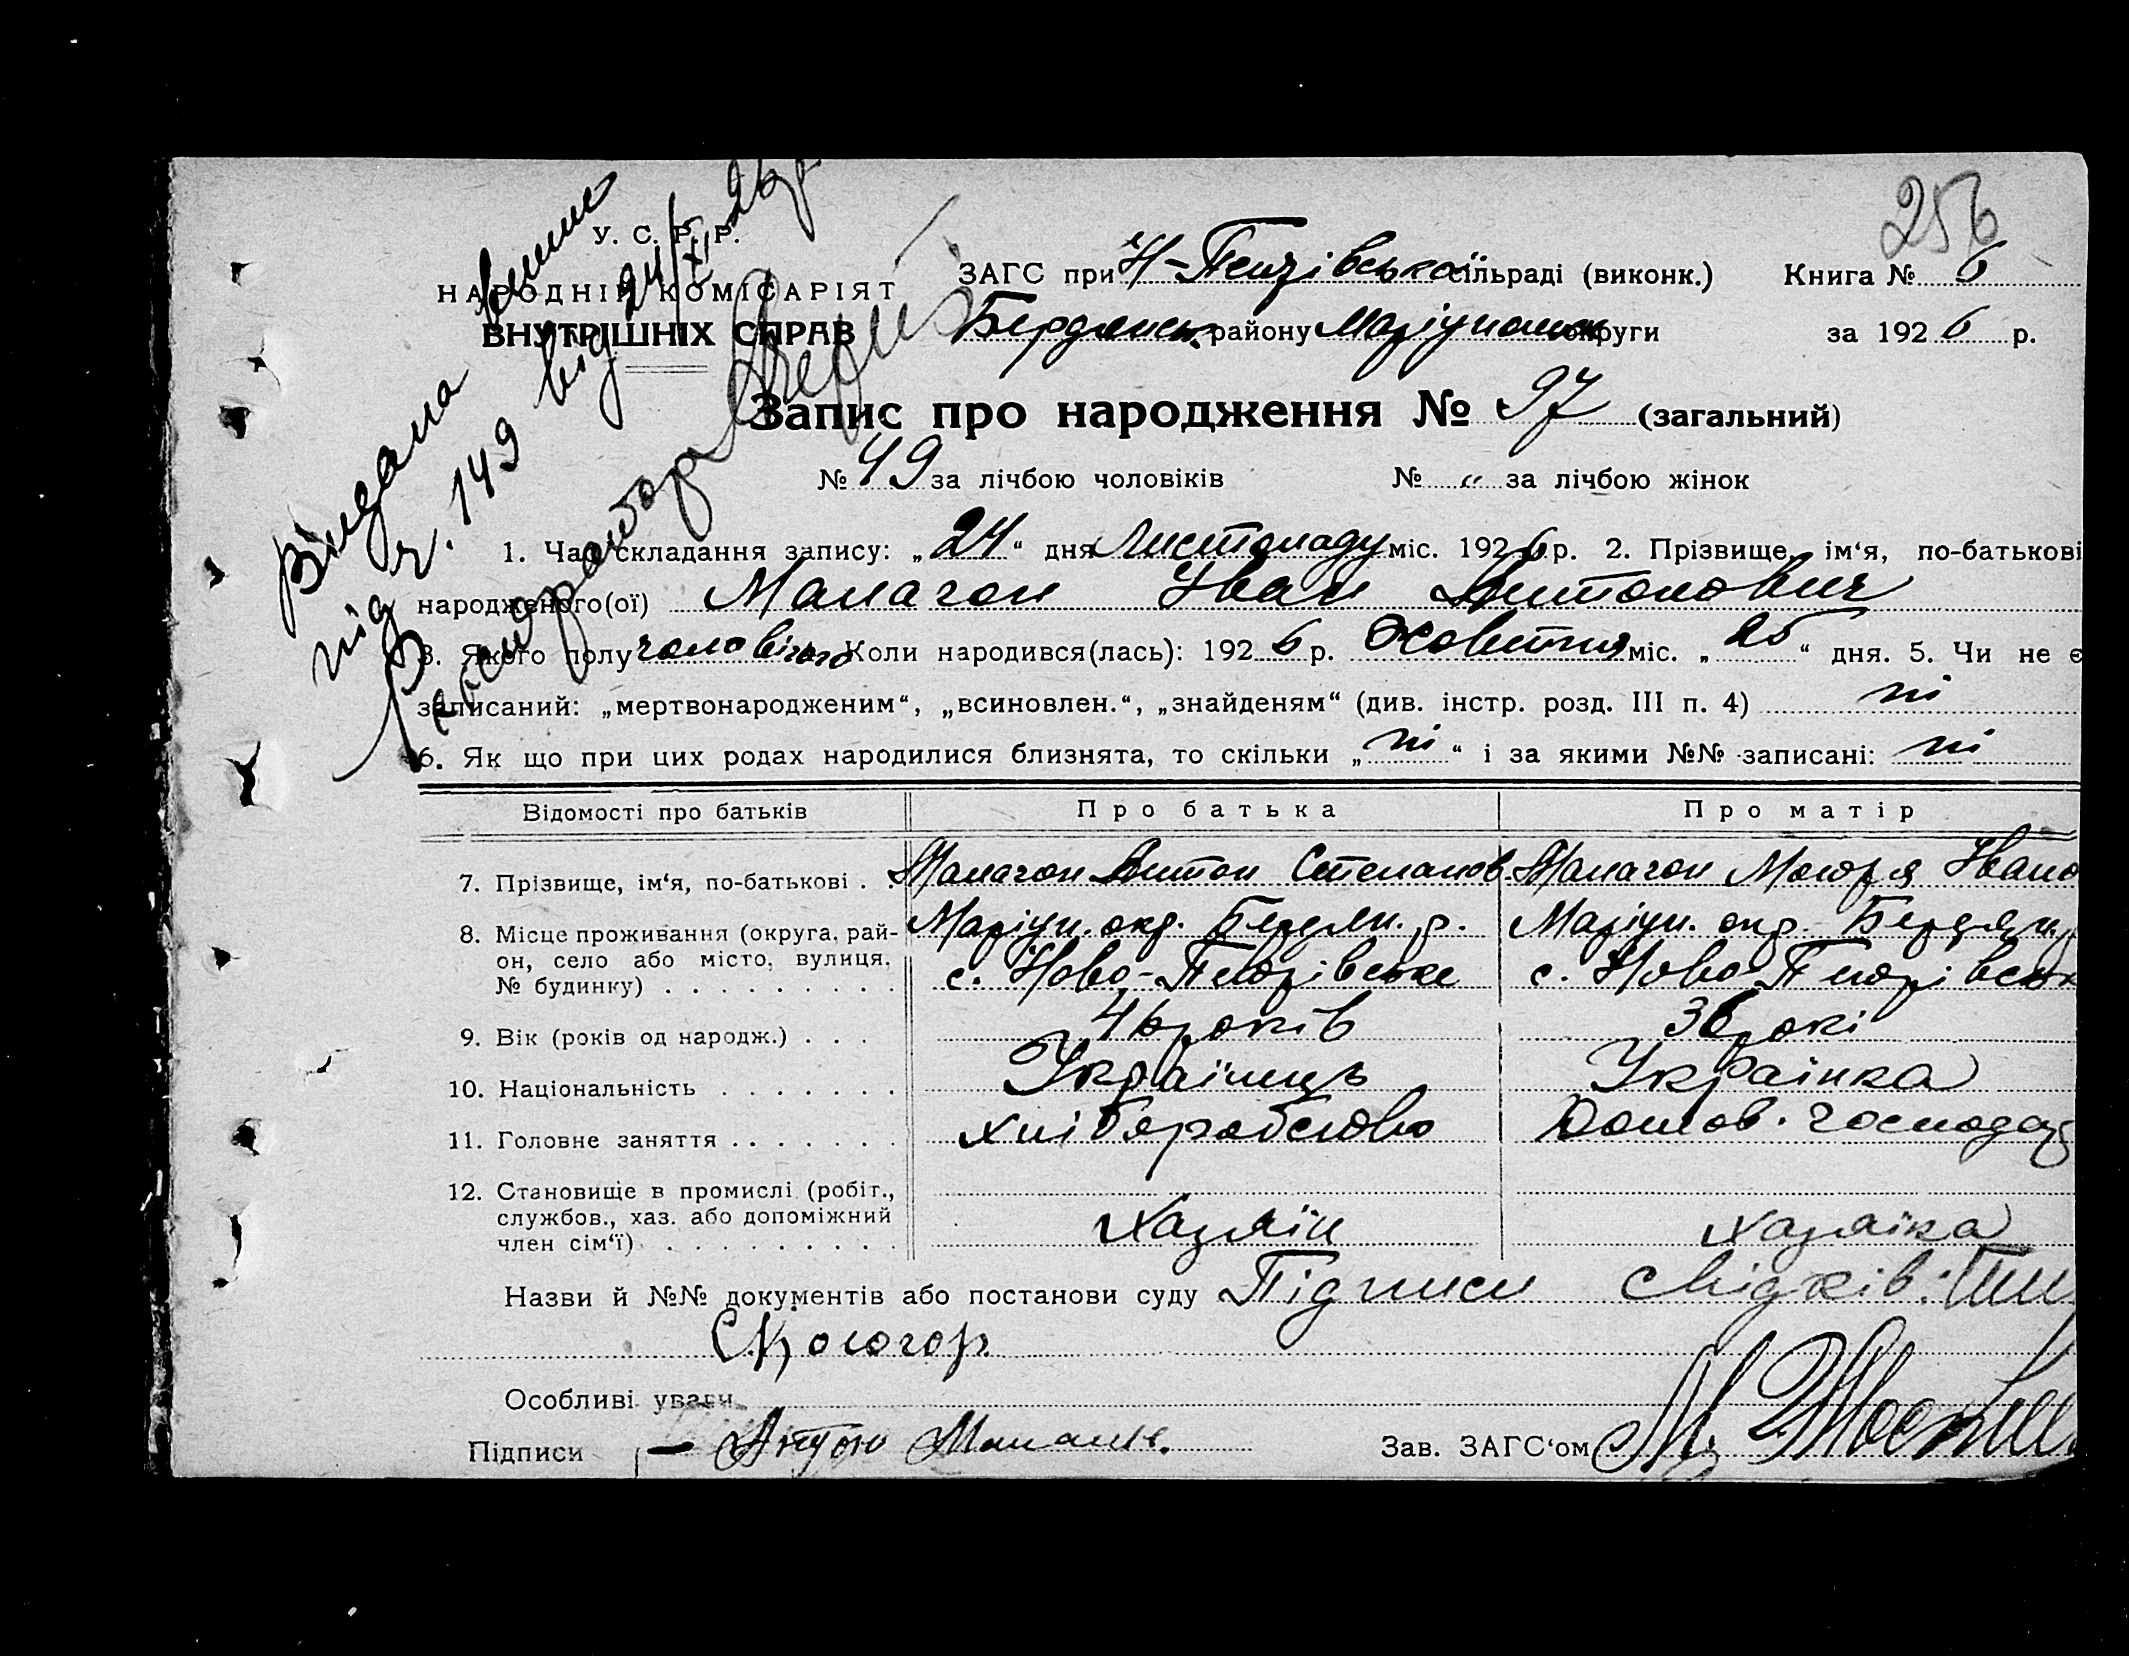 256
У. С. Р. Р.
НАРОДНІЙ КОМІСАРІЯТ
ВНУТРІШНІХ СПРАВ
Видана
під ч. 149 від 24/XI 26 р.
ЗАГС при сільраді (виконк.) Книга № 6
Бердянськ. району Маріупольськ округи за 1926 р.
Запис про народження № 97 (загальний)
№ 49 за лічбою чоловіків № „ за лічбою жінок
1. Час складання запису: „24“ дня Листопаду міс. 1926 р. 2. Прізвище, ім‘я, по-батькові
народженого(ої) Малагон Іван Антонович
3. Якого полу чоловічого Коли народився(лась): 1926 р. Жовтня міс. „25“ дня. 5. Чи не є
записаний: „мертвонародженим“, „всиновлен.“, „знайденям“ (див. інстр. розд. III п. 4) ні
6. Як що при цих родах народилися близнята, то скільки „ні“ і за якими №№ записані: ні
Відомості про батьків Про батька Про матір
7. Прізвище, ім‘я, по-батькові . . Малагон Антон Степанов. Малагон Івано
8. Місце проживання (округа, рай- Маріуп. окр. Бердян. р. Маріуп. окр. Бердян. р
он, село або місто, вулиця, с. Ново- с. Ново-
№ будинку) . . . . . . . . .
9. Вік (років од народж.) . . . 46 років 36 рокі
10. Національність . . . . . . . Українець Українка
11. Головне заняття . . . . . . . хліборобство Домов. господар
12. Становище в промислі (робіт.,
службов., хаз. або допоміжний Хазяїн хазяїка
член сім‘ї) . . . . . . . . .
Назви й №№ документів або постанови суду Підписи свідків:
Особливі уваги
Підписи — Антон Зав. ЗАГС‘ом